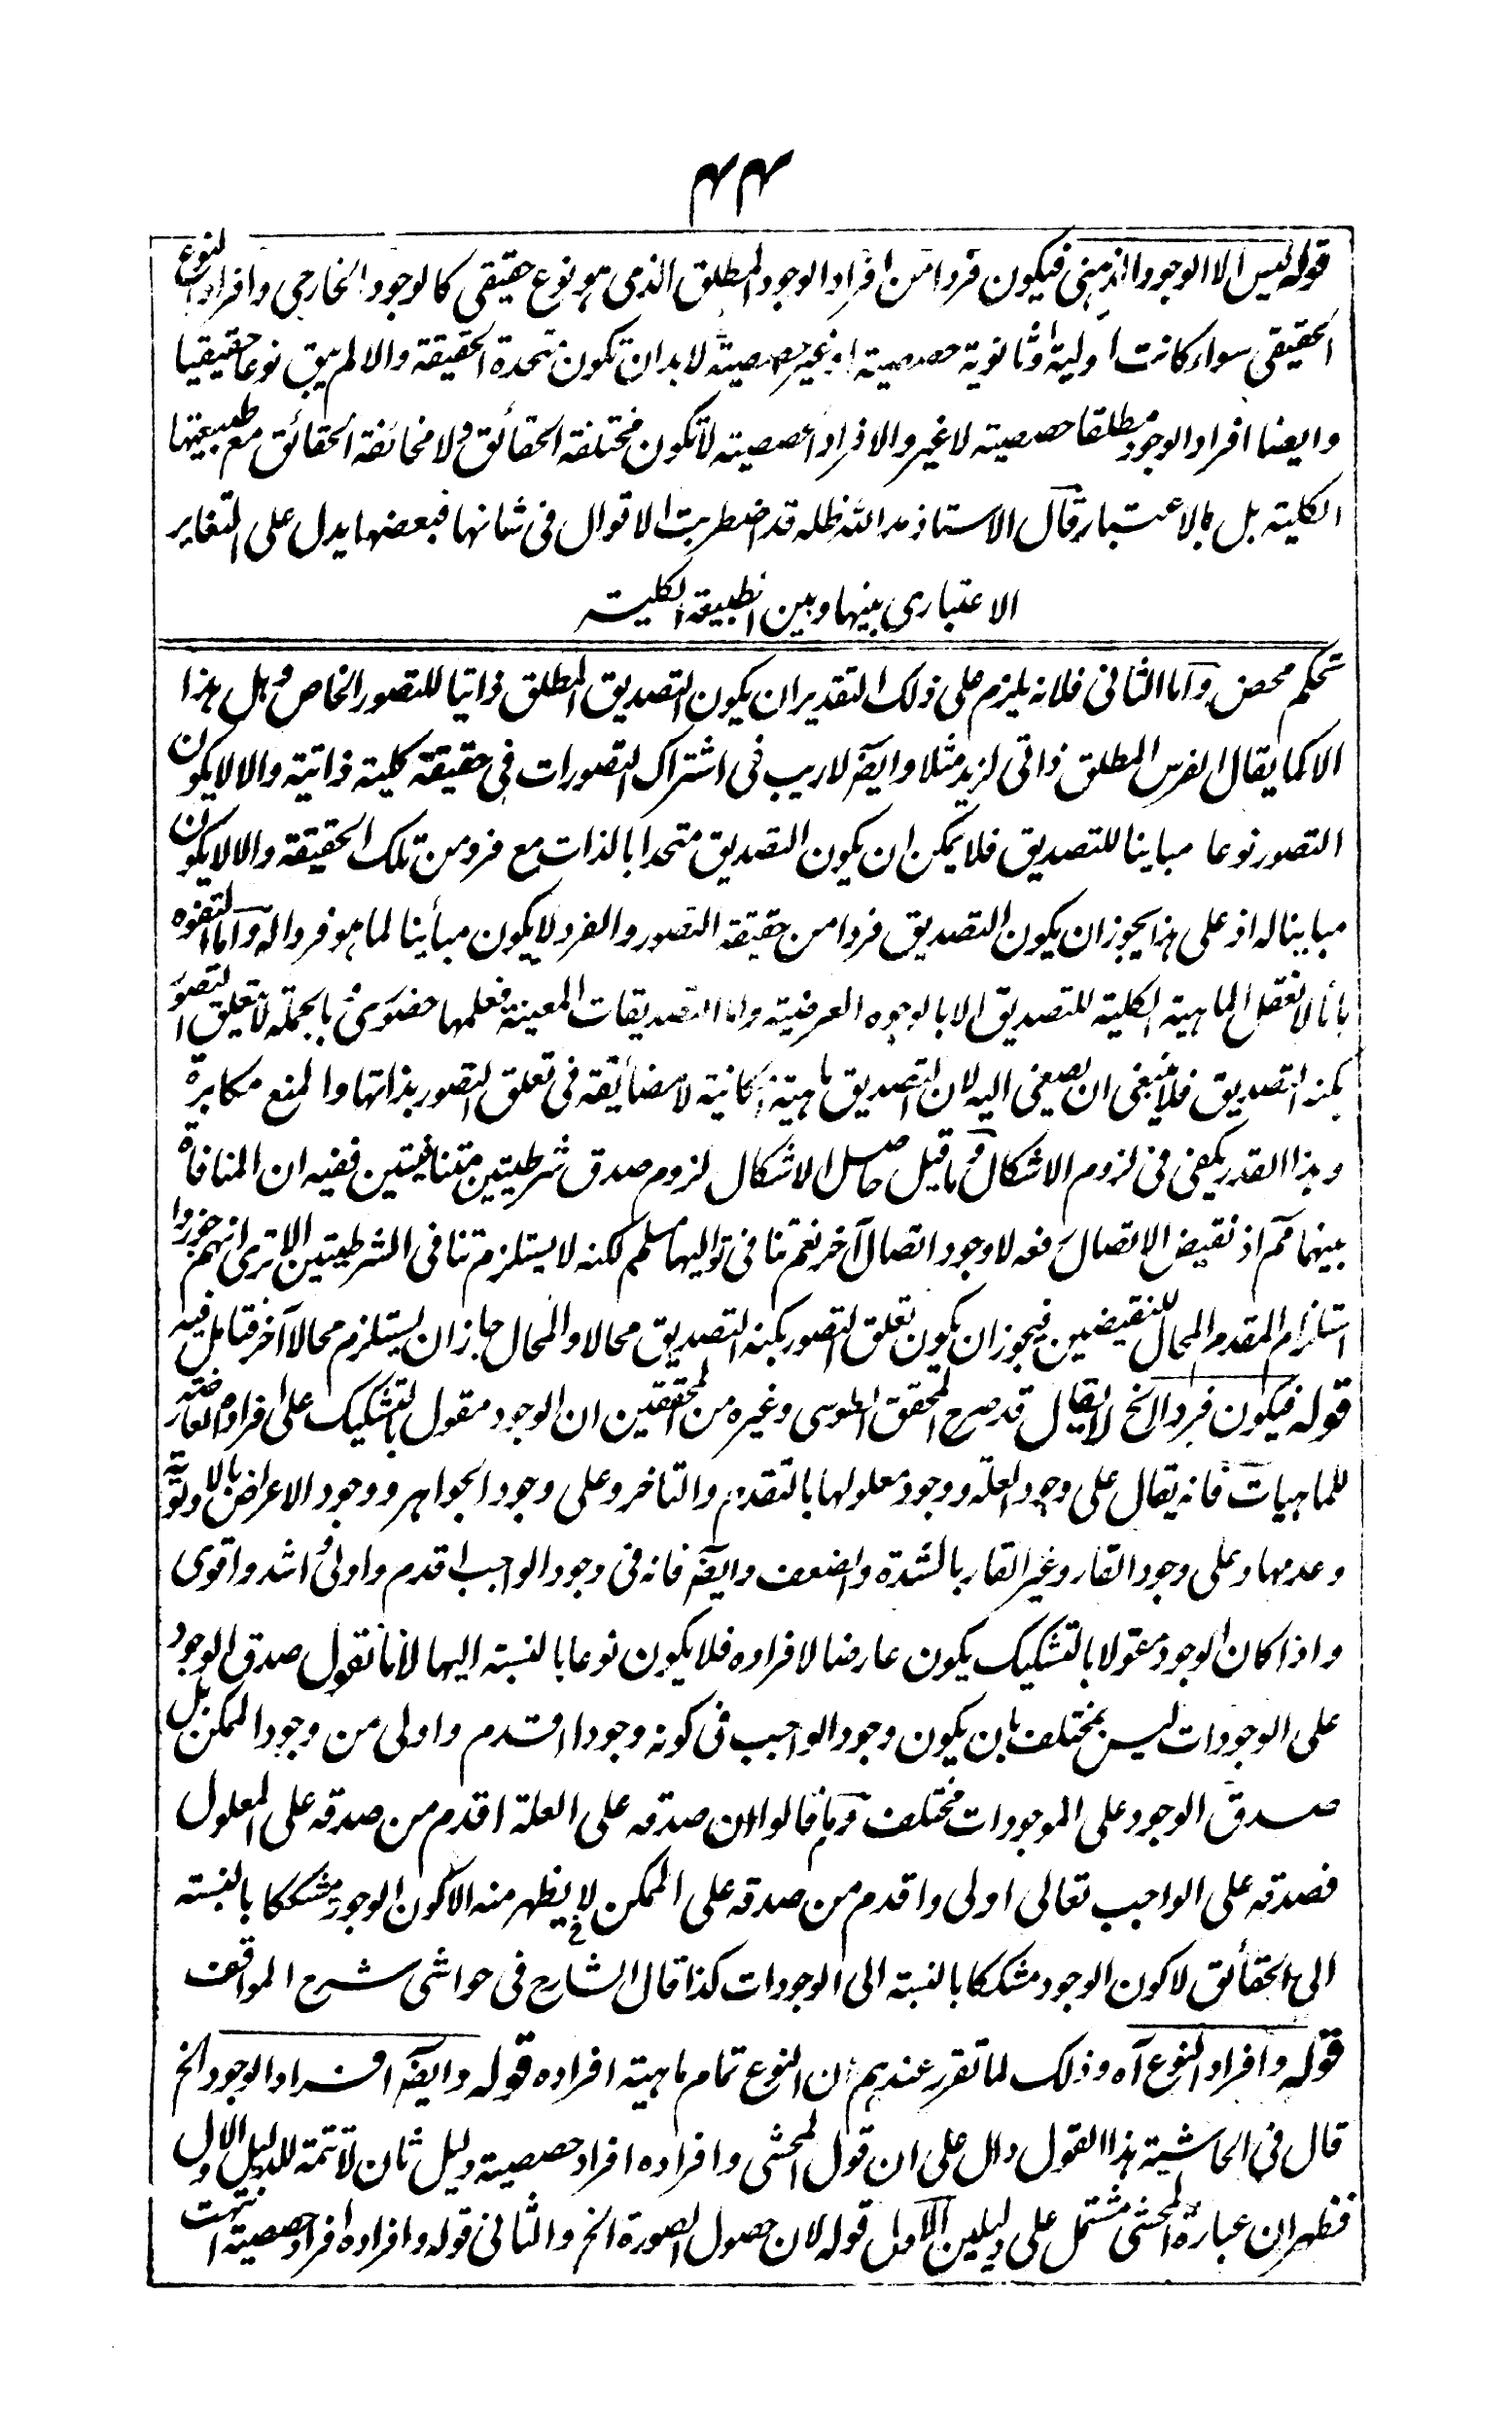 ۴۴
قوله ليس الا الوجود الذهنى فيكون فردا من افراد الوجود المطلق الذى هو نوع حقيقى كالوجود الخارجى وافراد النوع
الحقيقى سواء كانت اولية او ثانوية حصصية او غير حصصية لا بد ان تكون متحدة الحقيقة والا لم يبق نوعا حقيقيا
وايضا افراد الوجود مطلقا حصصية لا غير والافراد الحصصية لا تكون مختلفة الحقائق ولا مخالفة الحقائق مع طبيعتها
الكلية بل بالاعتبار قال الاستاذ مد الله ظله قد اضطربت الاقوال فى شانها فبعضها يدل على التغاير
الاعتبارى بينها وبين الطبيعة الكلية
تحكم محض واما الثانى فلانه يلزم على ذلك التقدير ان يكون التصديق المطلق ذاتيا للتصور الخاص وهل هذا
الا كما يقال الفرس المطلق ذاتى لزيد مثلا وايضا لاريب فى اشتراك التصورات فى حقيقة كلية ذاتية والا لا يكون
التصور نوعا مباينا للتصديق فلا يمكن ان يكون التصديق متحدا بالذات مع فرد من تلك الحقيقة والا لا يكون
مباينا له اذ على هذا يجوز ان يكون التصديق فردا من حقيقة التصور والفرد لا يكون مبائنا لما هو فرد له واما التفوه
بانا لا نعقل الماهية الكلية للتصديق الا بالوجوه العرضية واما التصديقات المعينة فعلمها حضورى فبالجملة لا تعلق التصور
بكنه التصديق فلا ينبغى ان يصغى اليه لان التصديق ماهية امكانية لا مضائقة فى تعلق التصور بذاتها والمنع مكابرة
وهذا القدر يكفى فى لزوم الاشكال وما قيل حاصل الاشكال لزوم صدق شرطيتين متنافيتين ففيه ان المنافاة
بينهما مم اذ نقيض الاتصال رفعه لا وجود اتصال آخر نعم تنافى تواليهما مسلم لكنه لا يستلزم تنافى الشرطيتين الا ترى انهم جوزوا
استلزام المقدم المحال للنقيضين فيجوز ان يكون تعلق التصور بكنه التصديق محالا والمحال جاز ان يستلزم محالا آخر فتامل فيه
قوله فيكون فردا الخ لا يقال قد صرح المحقق الطوسى وغيره من المحققين ان الوجود مقول بالتشكيك على افراده العارضة
للماهيات فانه يقال على وجود العلة ووجود معلولها بالتقدم والتاخر وعلى وجود الجواهر ووجود الاعراض بالاولوية
وعدمها وعلى وجود القار وغير القار بالشدة والضعف وايضا فانه فى وجود الواجب اقدم واولى واشد واقوى
واذا كان الوجود مقولا بالتشكيك يكون عارضا لافراده فلا يكون نوعا بالنسبة اليها لانا نقول صدق الوجود
على الوجودات ليس بمختلف بان يكون وجود الواجب فى كونه وجودا اقدم واولى من وجود الممكن بل
صدق الوجود على الموجودات مختلف وما قالوا ان صدقه على العلة اقدم من صدقه على المعلول
فصدقه على الواجب تعالى اولى واقدم من صدقه على الممكن لا يظهر منه الا كون الوجود مشككا بالنسبة
الى الحقائق لا كون الوجود مشككا بالنسبة الى الوجودات كذا قال الشارح فى حواشى شرح المواقف
قوله وافراد النوع آه وذلك لما تقرر عندهم ان النوع تمام ماهية افراده قوله وايضا افراد الوجود الخ
قال فى الحاشية هذا القول دال على ان قول المحشى وافراده افراد حصصية دليل ثان لا تتمة للدليل الاول
فظهر ان عبارة المحشى مشتمل على دليلين الاول قوله لان حصول الصورة الخ والثانى قوله وافراده افراد حصصية انتهت